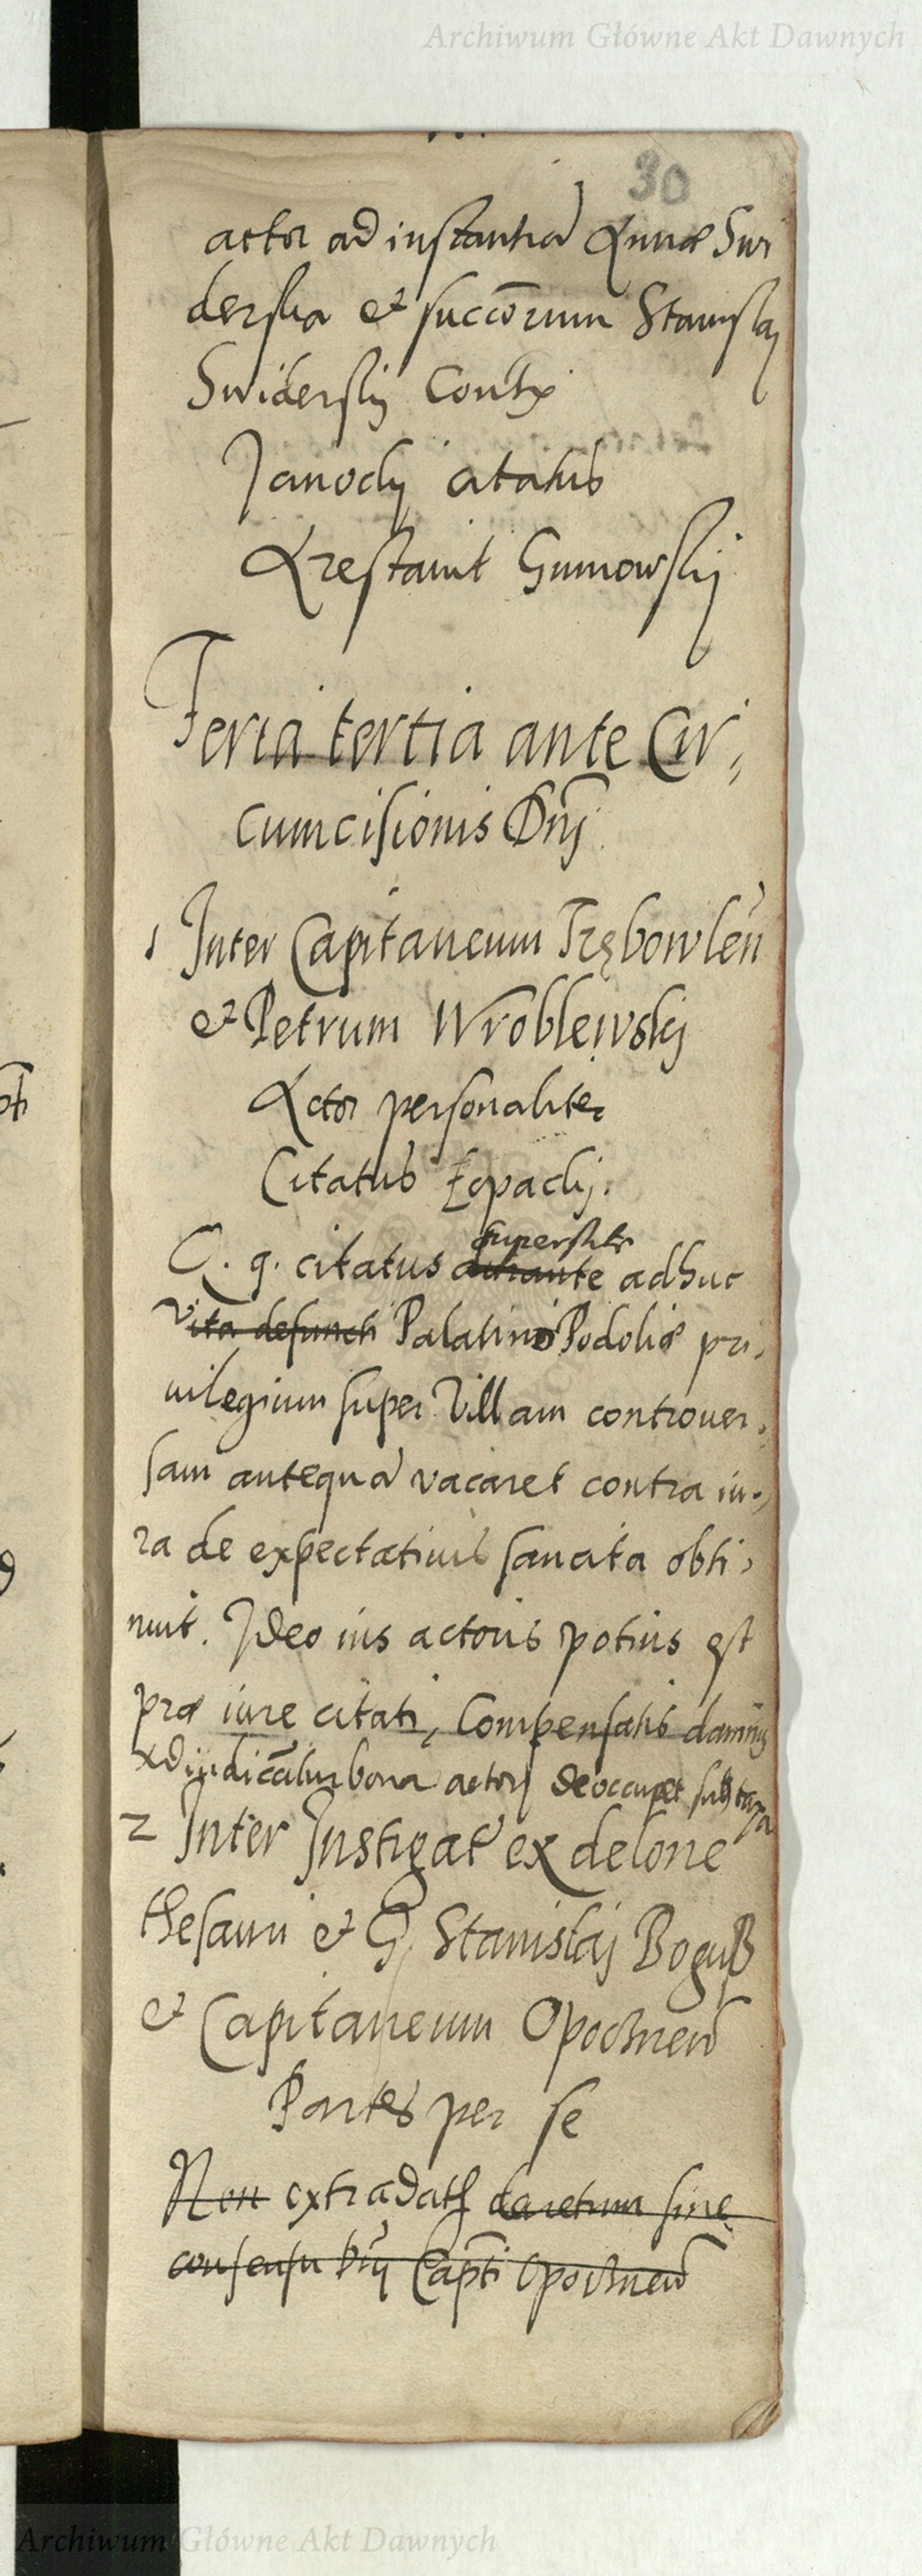 Archiwum Główne Akt Dawnych
30
actor ad instantiā Annæ Swi
derska et succorum Stanislaj
Swiderskij Contx
Janocij citatus
Arestauit Gumowskij
Feria tertia ante Cir,
cumcisionis Dnj
1 Inter Capitaneum Trębowlen
et Petrum Wroblewskj
Actor personaliter
Citatus Łopackj.
Q. q. citatus superstite adhuc
vita defuncti Palatino Podoliæ pri,
uilegium super Villam controuer,
sam antequā vacaret contra iu,
ra de expectatiuis sancita obti,
nuit. Ideo ius actoris potius est
præ iure citati, Compensatis damnis
Adiudicātur bona actorj
2 Inter Instigat ex delone
thesauri et G. Stanislaj Boguß
et Capitaneum Opocznen
Partes per se
Non extradat decretum sine
consensu Capti Opocznen
Archiwum Główne Akt Dawnych